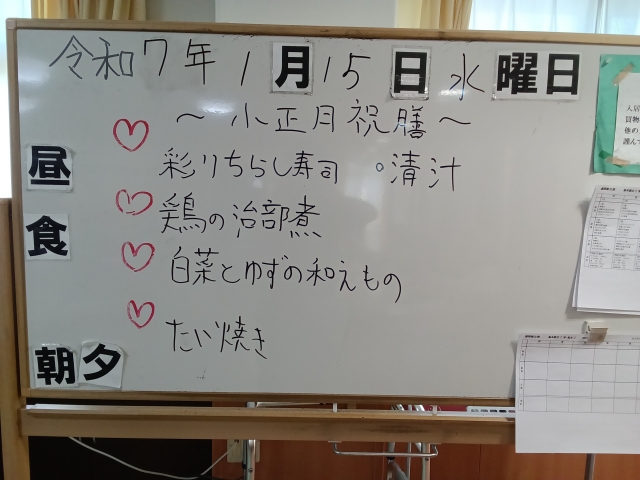 令和7年1月15日水曜日
～小正月祝膳～
昼食
彩りちらし寿司 ○清汁
鶏の治部煮
白菜とゆずの和えもの
たい焼き
朝夕